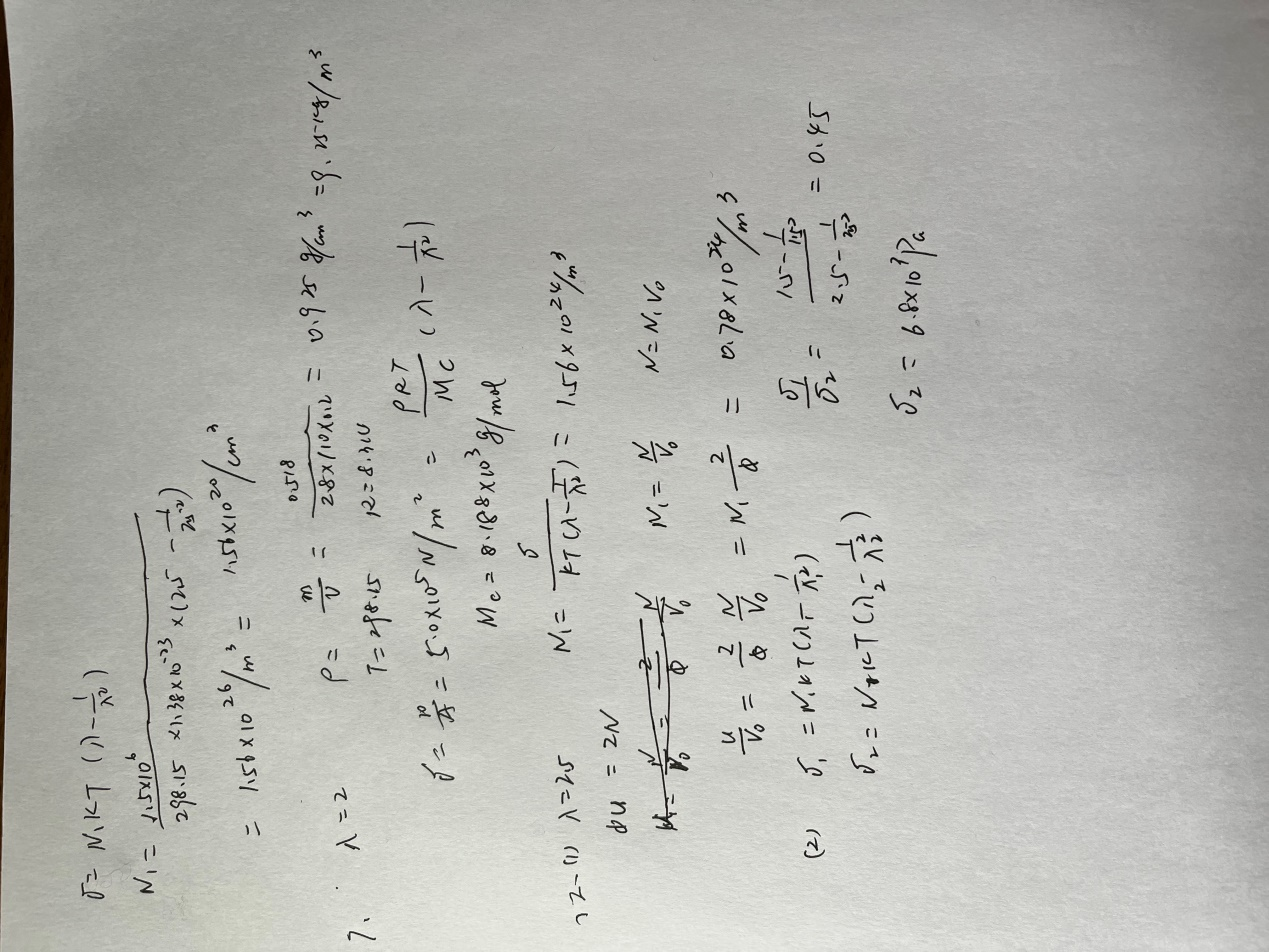 σ = N₁KT (λ - 1/λ²)
N₁ = 1.5×10⁶ / (298.15 × 1.38×10⁻²³ × (2.5 - 1/2.5²))
= 1.56×10²⁶/m³ = 1.56×10²⁰/cm³
7. λ=2 ρ = m/V = 0.518 / (2.8×1×0.2) = 0.925 g/cm³ = 9.25 kg/m³
T=298.15 R=8.314
σ = 10/A = 5.0×10⁵ N/m² = ρRT/Mc (λ - 1/λ²)
Mc = 8.188×10³ g/mol
12-(1) λ=2.5 N₁ = σ / (KT(λ - 1/λ²)) = 1.56×10²⁴/m³
φu = 2N
N₁ = N/V₀ N=N₁V₀
u/V₀ = 2/φ N/V₀ = N₁ 2/φ = 0.78×10²⁴/m³
(2) σ₁ = N₁KT(λ₁ - 1/λ₁²) σ₁/σ₂ = (1.5 - 1/1.5²) / (2.5 - 1/2.5²) = 0.45
σ₂ = N₁KT(λ₂ - 1/λ₂²)
σ₂ = 6.8×10³ Pa